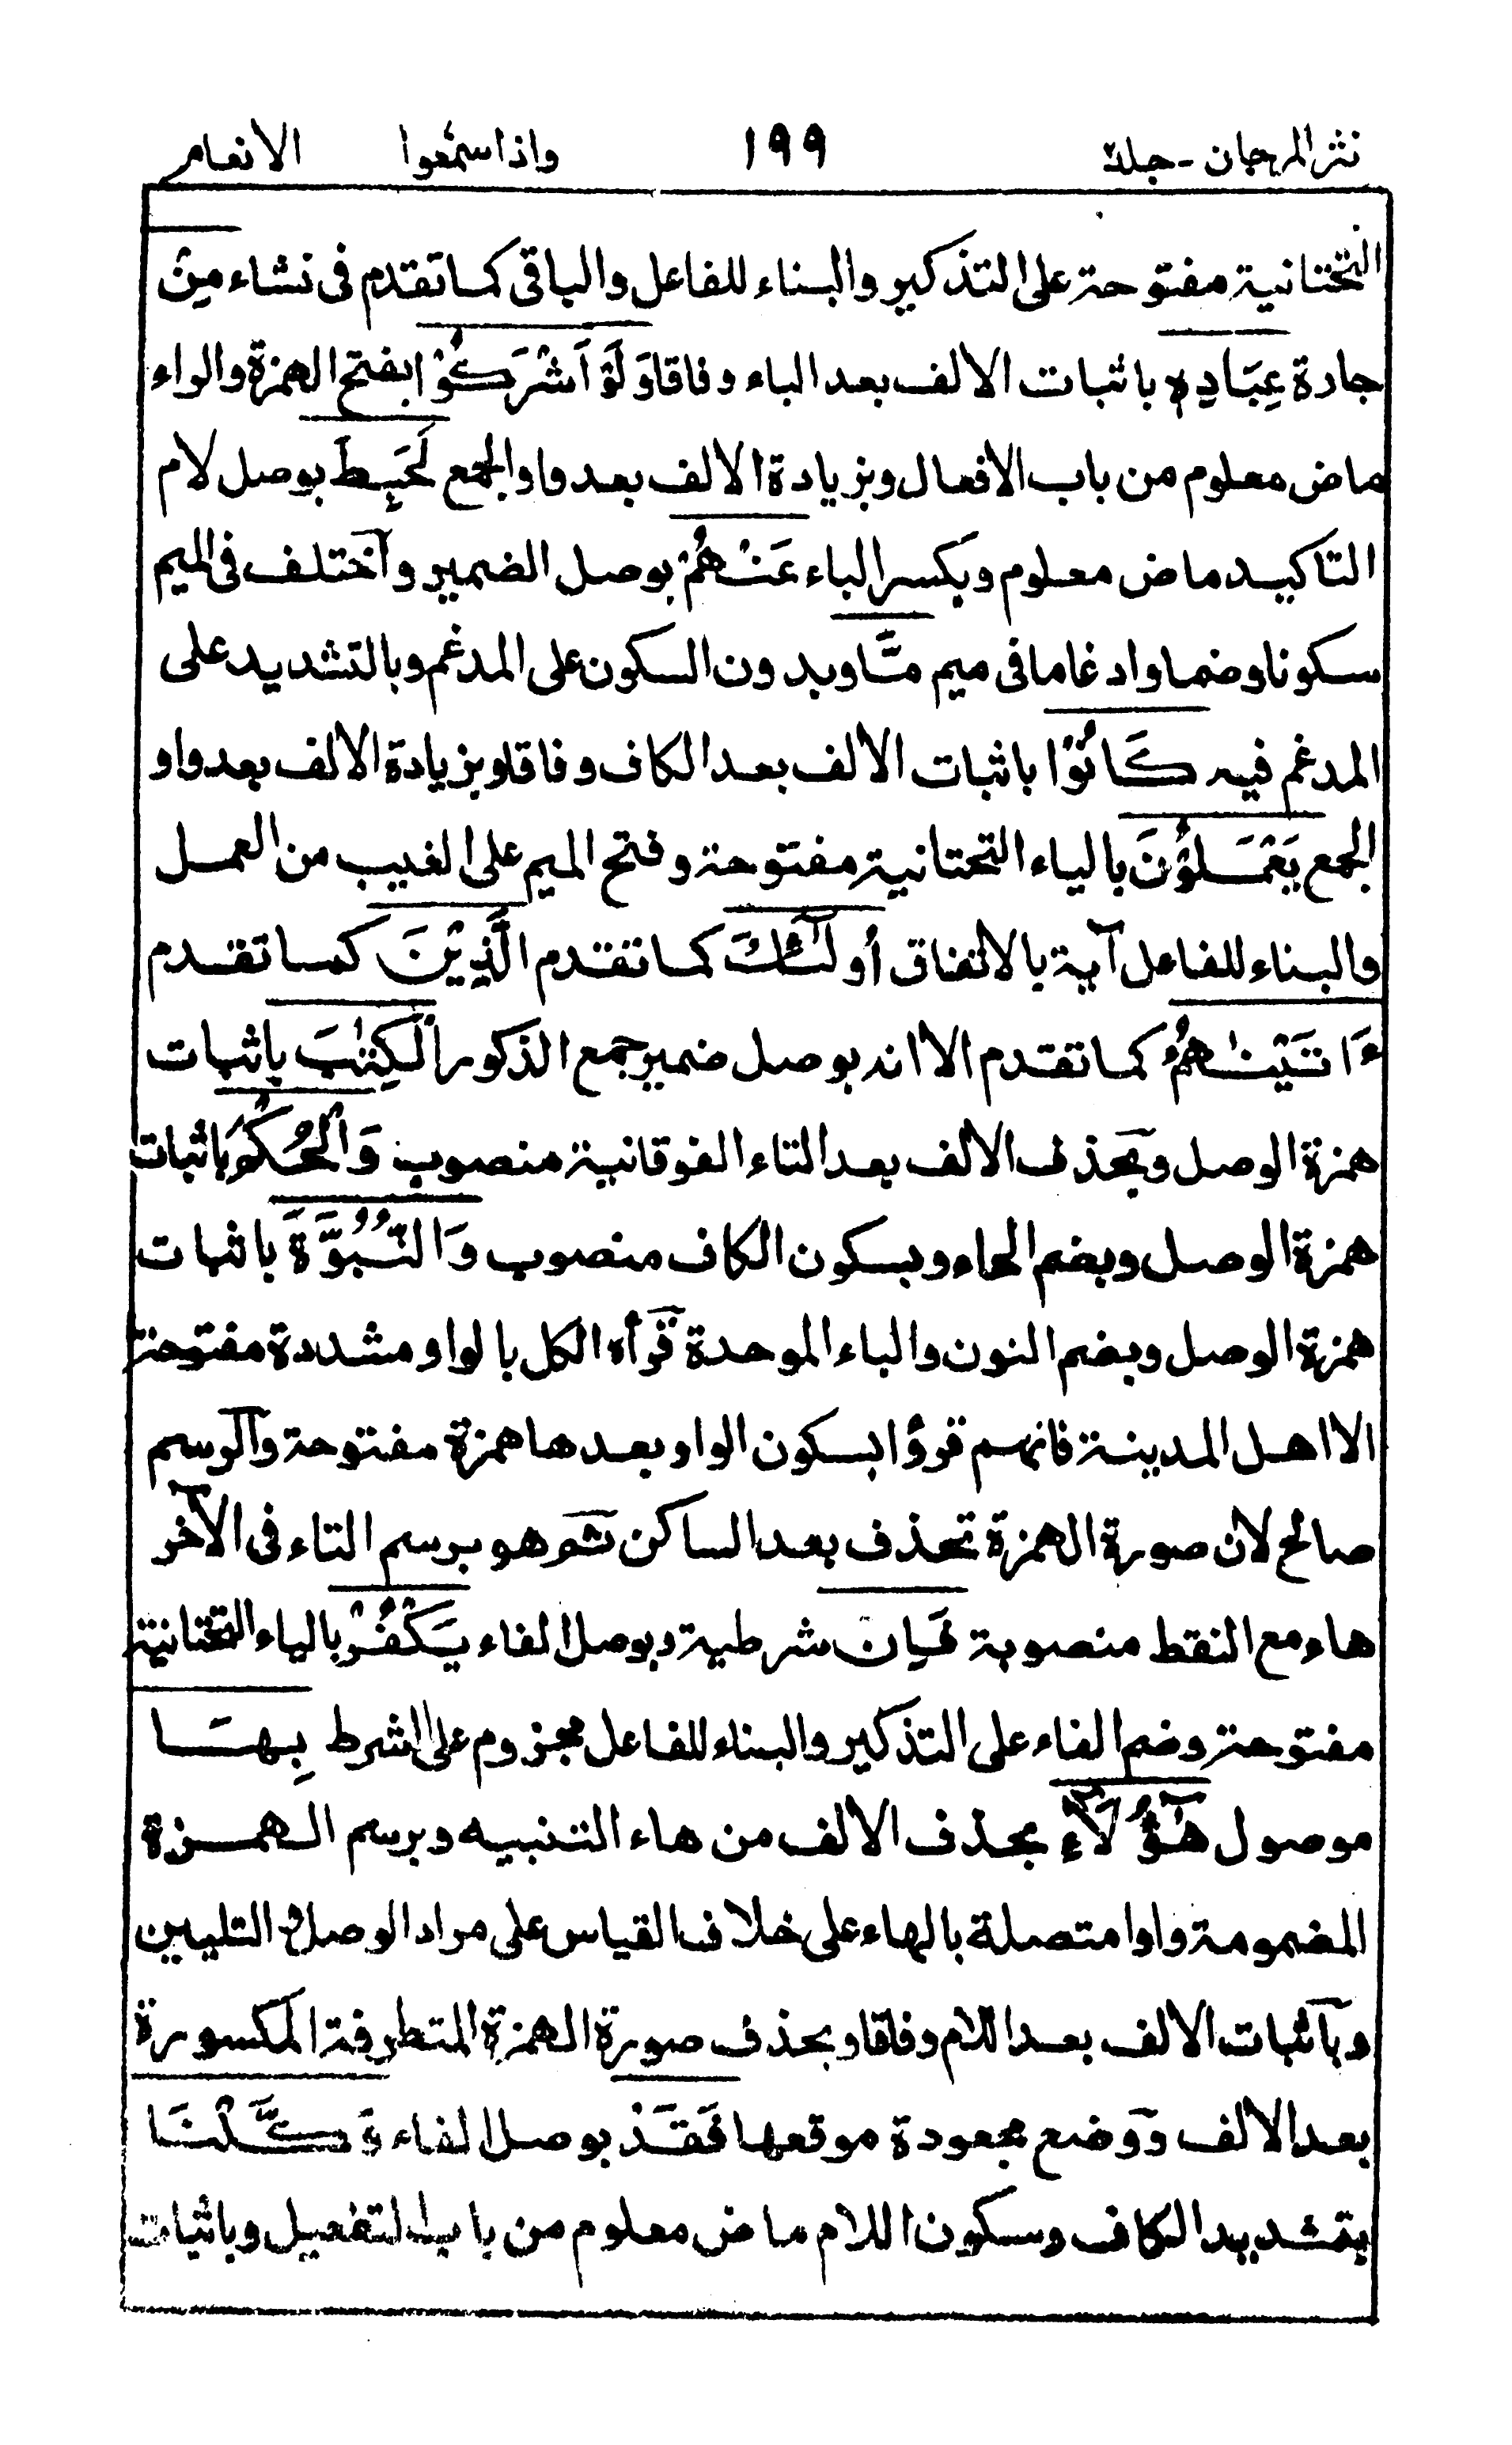 نثر المرجان - جلد ٢ ١٩٩ واذا سمعوا الانعام
التحتانية مفتوحة على التذكير والبناء للفاعل والباقى كما تقدم فى نشاء مِنْ
جارة عِبَادِهٖ باثبات الالف بعد الباء وفاقا وَلَوْ اَشْرَكُوْا بفتح الهمزة والراء
ماض معلوم من باب الافعال وبزيادة الالف بعد واو الجمع لَحَبِطَ بوصل لام
التاكيد ماض معلوم وبكسر الباء عَنْهُمْ بوصل الضمير واختلف فى الميم
سكونا وضما وادغاما فى ميم مَّا وبدون السكون على المدغم وبالتشديد على
المدغم فيه كَانُوْا باثبات الالف بعد الكاف وفاقا وبزيادة الالف بعد واو
الجمع يَعْمَلُوْنَ بالياء التحتانية مفتوحة وفتح الميم على الغيب من العمل
والبناء للفاعل آية بالاتفاق أُولٰٓئِكَ كما تقدم الَّذِيْنَ كما تقدم
ءَاتَيْنٰهُمُ كما تقدم الا انه بوصل ضمير جمع الذكور الْكِتٰبَ باثبات
همزة الوصل وبحذف الالف بعد التاء الفوقانية منصوب وَالْحُكْمَ باثبات
همزة الوصل وبضم الحاء وبسكون الكاف منصوب وَالنُّبُوَّةَ باثبات
همزة الوصل وبضم النون والباء الموحدة قرأه الكل بالواو مشددة مفتوحة
الا اهل المدينة فانهم قرؤا بسكون الواو وبعدها همزة مفتوحة والرسم
صالح لان صورة الهمزة تحذف بعد الساكن ثم هو برسم التاء فى الآخر
هاء مع النقط منصوبة فَاِن شرطية وبوصل الفاء يَكْفُرْ بالياء التحتانية
مفتوحة وضم الفاء على التذكير والبناء للفاعل مجزوم على الشرط بِهَا
موصول هٰٓؤُلَآءِ بحذف الالف من هاء التنبيه وبرسم الهمزة
المضمومة واوا متصلة بالهاء على خلاف القياس على مراد الوصل والتليين
وباثبات الالف بعد اللام وفاقا وبحذف صورة الهمزة المتطرفة المكسورة
بعد الالف ووضع مجعودة موقعها فَقَدْ بوصل الفاء وَكَّلْنَا
بتشديد الكاف وسكون اللام ماض معلوم من باب التفعيل وباثبات